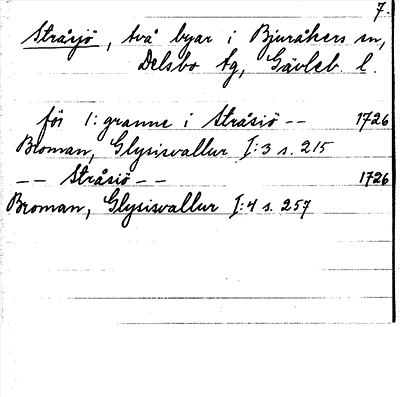 7.
Stråsjö, två byar i Bjuråkers sn,
Delsbo tg, Gävleb. l.
för 1: granne i Stråsiö -- 1726
Broman, Glysisvallur I:3 s. 215
-- Stråsiö -- 1726
Broman, Glysisvallur I:4 s. 257